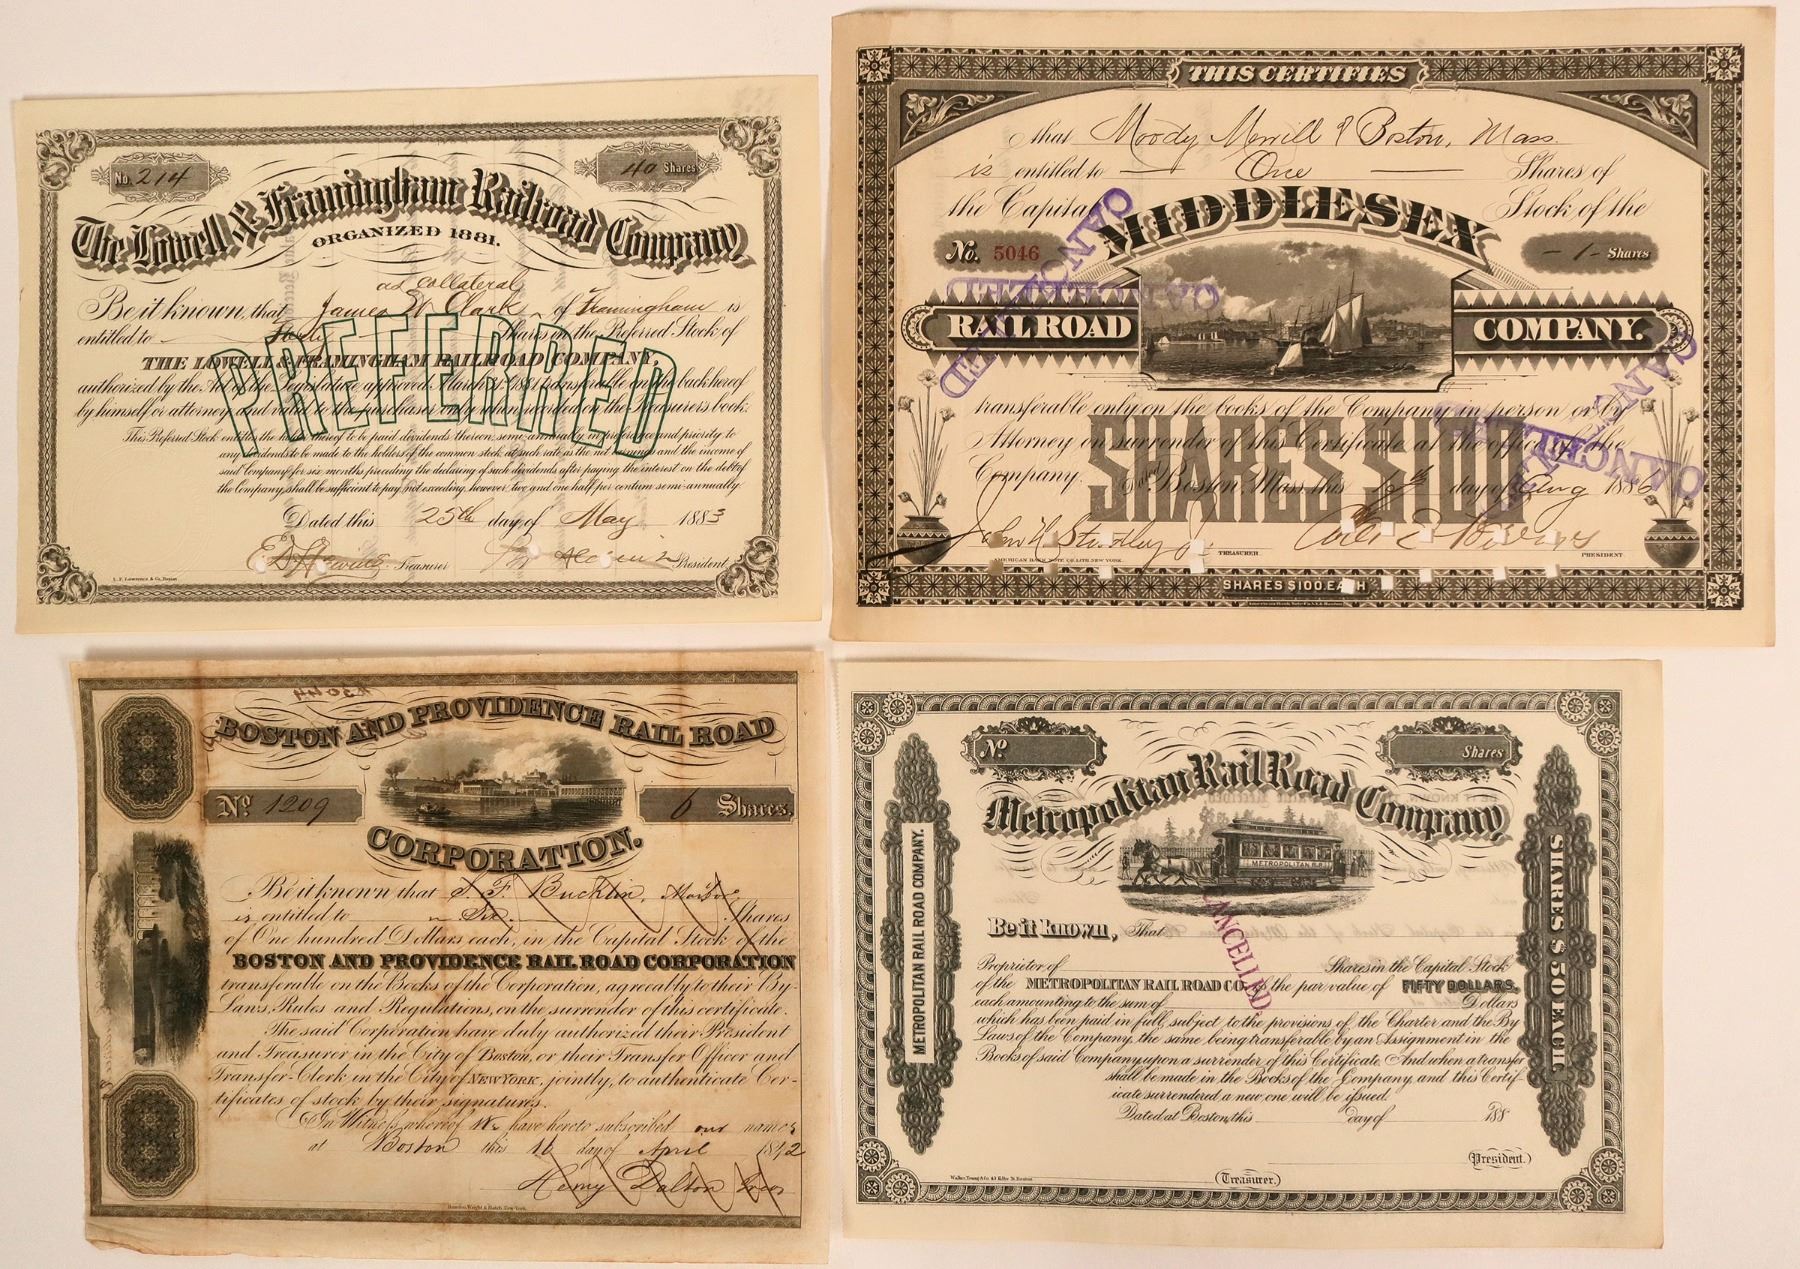 No. 214
40 Shares
The Lowell & Framingham Railroad Company
ORGANIZED 1881.
as collateral
Be it known, that James W Clark of Framingham is
entitled to Forty Shares in the Preferred Stock of
THE LOWELL & FRAMINGHAM RAILROAD COMPANY,
authorized by the Act of the Legislature approved March 1881 transferable on the back hereof
by himself or attorney and valid to the purchaser only when recorded on the Treasurer's books.
This Preferred Stock entitles the holder thereof to be paid dividends thereon, semi-annually in preference and priority to
any dividends to be made to the holders of the common stock at such rate as the net earnings and the income of
said Company for six months preceding the declaring of such dividends after paying the interest on the debt of
the Company, shall be sufficient to pay, not exceeding, however, two and one half per centum semi-annually.
PREFERRED
Dated this 25th day of May 1883
Treasurer
President
THIS CERTIFIES
that Moody Merrill of Boston, Mass.
is entitled to One Shares of
the Capital Stock of the
MIDDLESEX
No. 5046
- 1 - Shares
RAILROAD COMPANY.
transferable only on the books of the Company in person or by
Attorney on surrender of this Certificate at the office of the
Company.
Boston, Mass. this day of Aug 1886
SHARES $100
CANCELLED
CANCELLED
CANCELLED
CANCELLED
TREASURER
PRESIDENT
AMERICAN BANK NOTE CO. LITH. NEW YORK.
SHARES $100. EACH
BOSTON AND PROVIDENCE RAIL ROAD
No. 1209
6 Shares.
CORPORATION.
Be it known that S. F. Bucklin,
is entitled to Six Shares
of One hundred Dollars each, in the Capital Stock of the
BOSTON AND PROVIDENCE RAIL ROAD CORPORATION
transferable on the Books of the Corporation, agreeably to their By-
Laws, Rules and Regulations, on the surrender of this certificate.
The said Corporation have duly authorized their President
and Treasurer in the City of Boston, or their Transfer Officer and
Transfer-Clerk in the City of NEW YORK, jointly, to authenticate Cer-
tificates of stock by their signatures.
In Witness whereof We have hereto subscribed our names
at Boston this 16 day of April 1842
Henry Dalton Treas
No.
Shares
Metropolitan Rail Road Company
METROPOLITAN R.R.
METROPOLITAN RAIL ROAD COMPANY.
SHARES $50 EACH
Be it known, That
Proprietor of Shares in the Capital Stock
of the METROPOLITAN RAIL ROAD CO. of the par value of FIFTY DOLLARS,
each amounting to the sum of Dollars
which has been paid in full, subject to the provisions of the Charter and the By
Laws of the Company, the same being transferable by an Assignment in the
Books of said Company upon a surrender of this Certificate. And when a transfer
shall be made in the Books of the Company, and this Certif-
icate surrendered a new one will be issued.
Dated at Boston, this day of 188
CANCELLED.
(President.)
(Treasurer.)